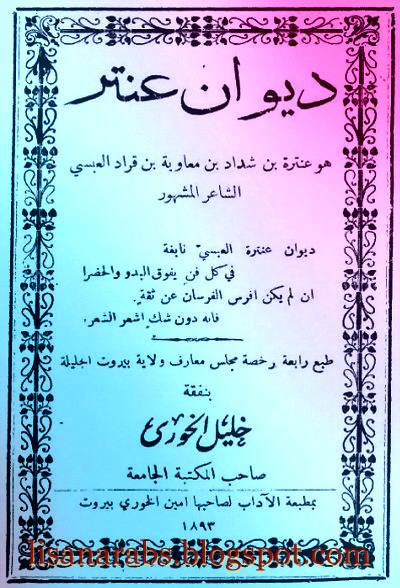 ديوان عنتر
هو عنترة بن شداد بن معاوية بن قراد العبسي
الشاعر المشهور
ديوان عنترة العبسيّ نابغة
في كل فنٍ يفوق البدو والحضرا
ان لم يكن افرس الفرسان عن ثقةٍ
فانه دون شكٍ اشعر الشعرا
طبع رابعة برخصة مجلس معارف ولاية بيروت الجليلة
بنفقة
خليل الخوري
صاحب المكتبة الجامعة
بمطبعة الآداب لصاحبها امين الخوري بيروت
١٨٩٣
lisanarabs.blogspot.com